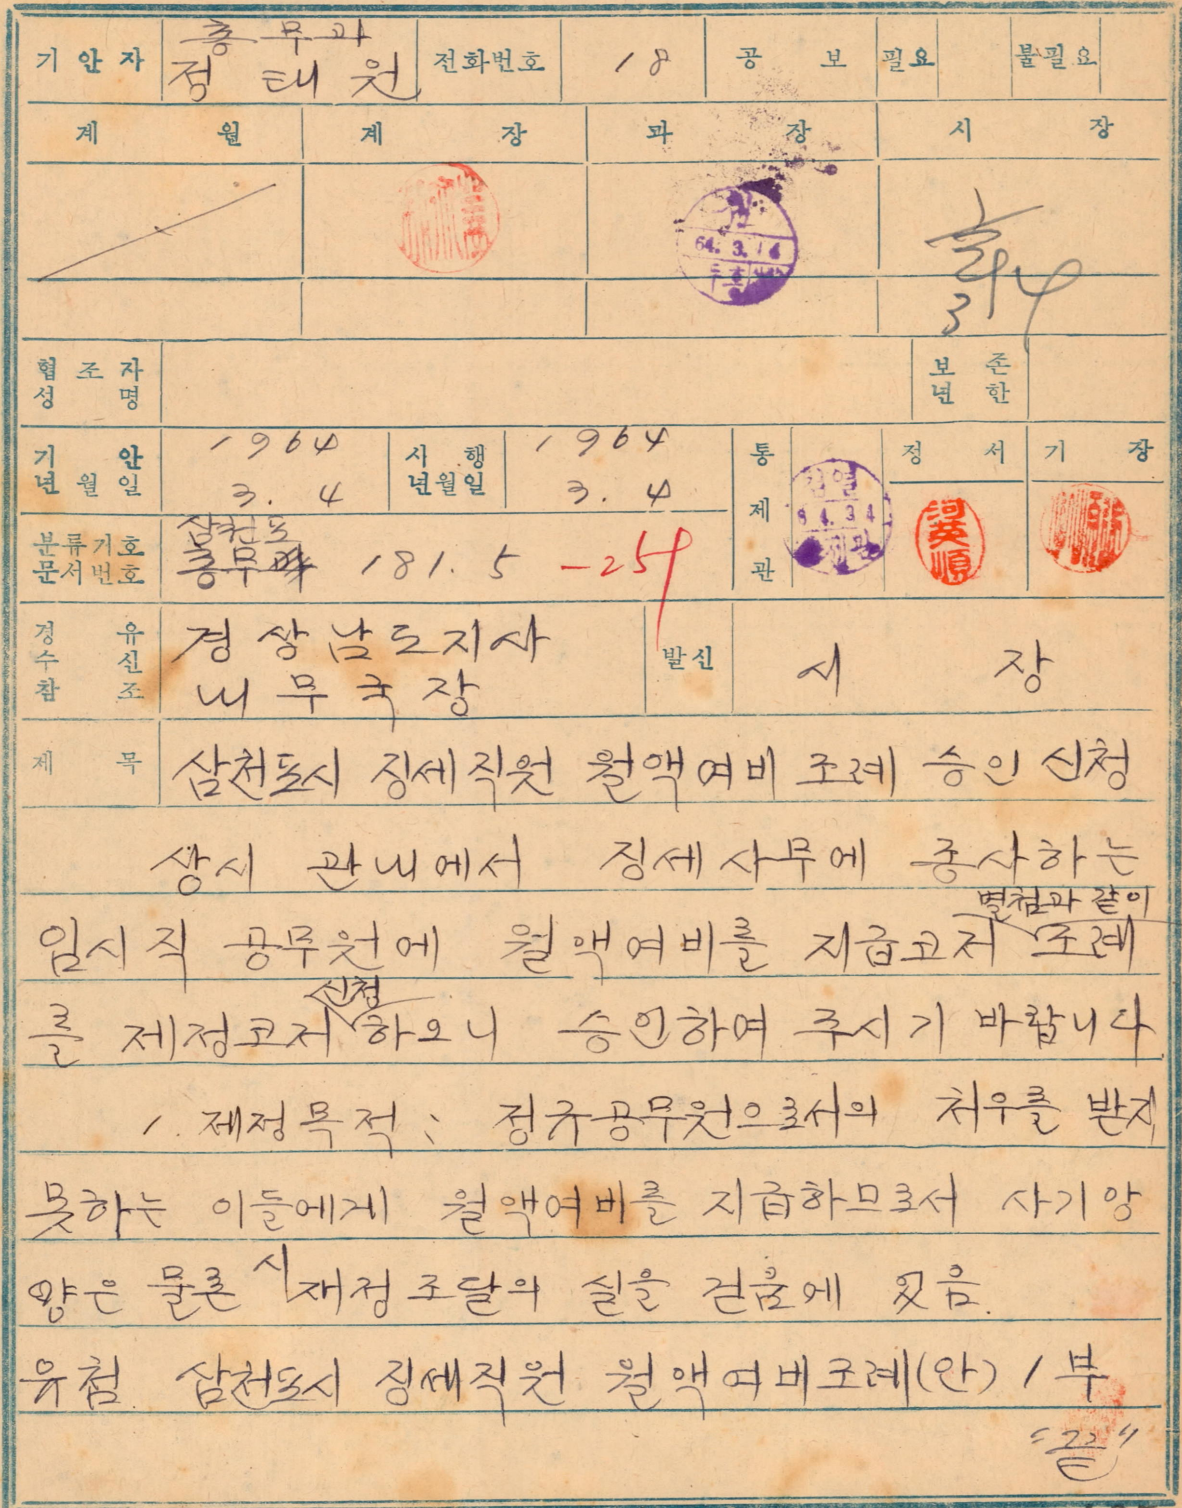 기안자 총무과 정태원 전화번호 18 공보 필요 불필요
계원 계장 과장 시장
64. 3. 14
3/4
협조자 성명 보존 년한
기안 년월일 1964 3. 4 시행 년월일 1964 3. 4 통제관 검열 64. 3 4 정서 河英順 기장
분류기호 문서번호 삼천포 총무 181. 5 -259
경유 수신 참조 경상남도지사 내무국장 발신 시장
제목 삼천포시 징세직원 월액여비 조례 승인 신청
상시 관내에서 징세사무에 종사하는
별첨과 같이
임시직 공무원에 월액여비를 지급고저 조례
신청
를 제정코저 하오니 승인하여 주시기 바랍니다
1. 제정목적: 정규공무원으로서의 처우를 받지
못하는 이들에게 월액여비를 지급하므로서 사기앙
양은 물론 시재정조달의 실을 걷움에 있음.
유첨. 삼천포시 징세직원 월액여비조례(안) 1부
"끝"